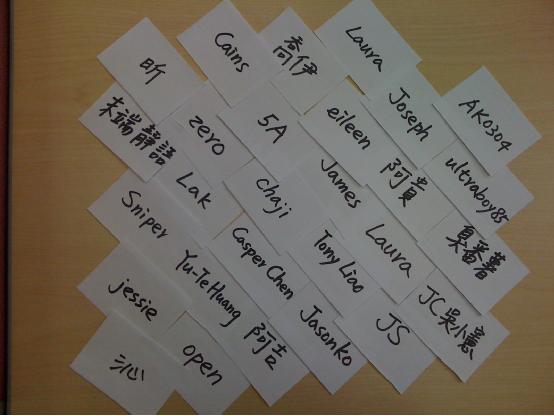 昕
Cains
喬伊
Laura
末端靜語
zero
5A
eileen
Joseph
AK0304
Lak
chaji
James
阿貴
ultraboy85
Sniper
Casper Chen
Tony Liao
Laura
臭番薯
jessie
Yu-Te Huang
阿吉
Jasonko
JS
JC吳小憲
沁
open